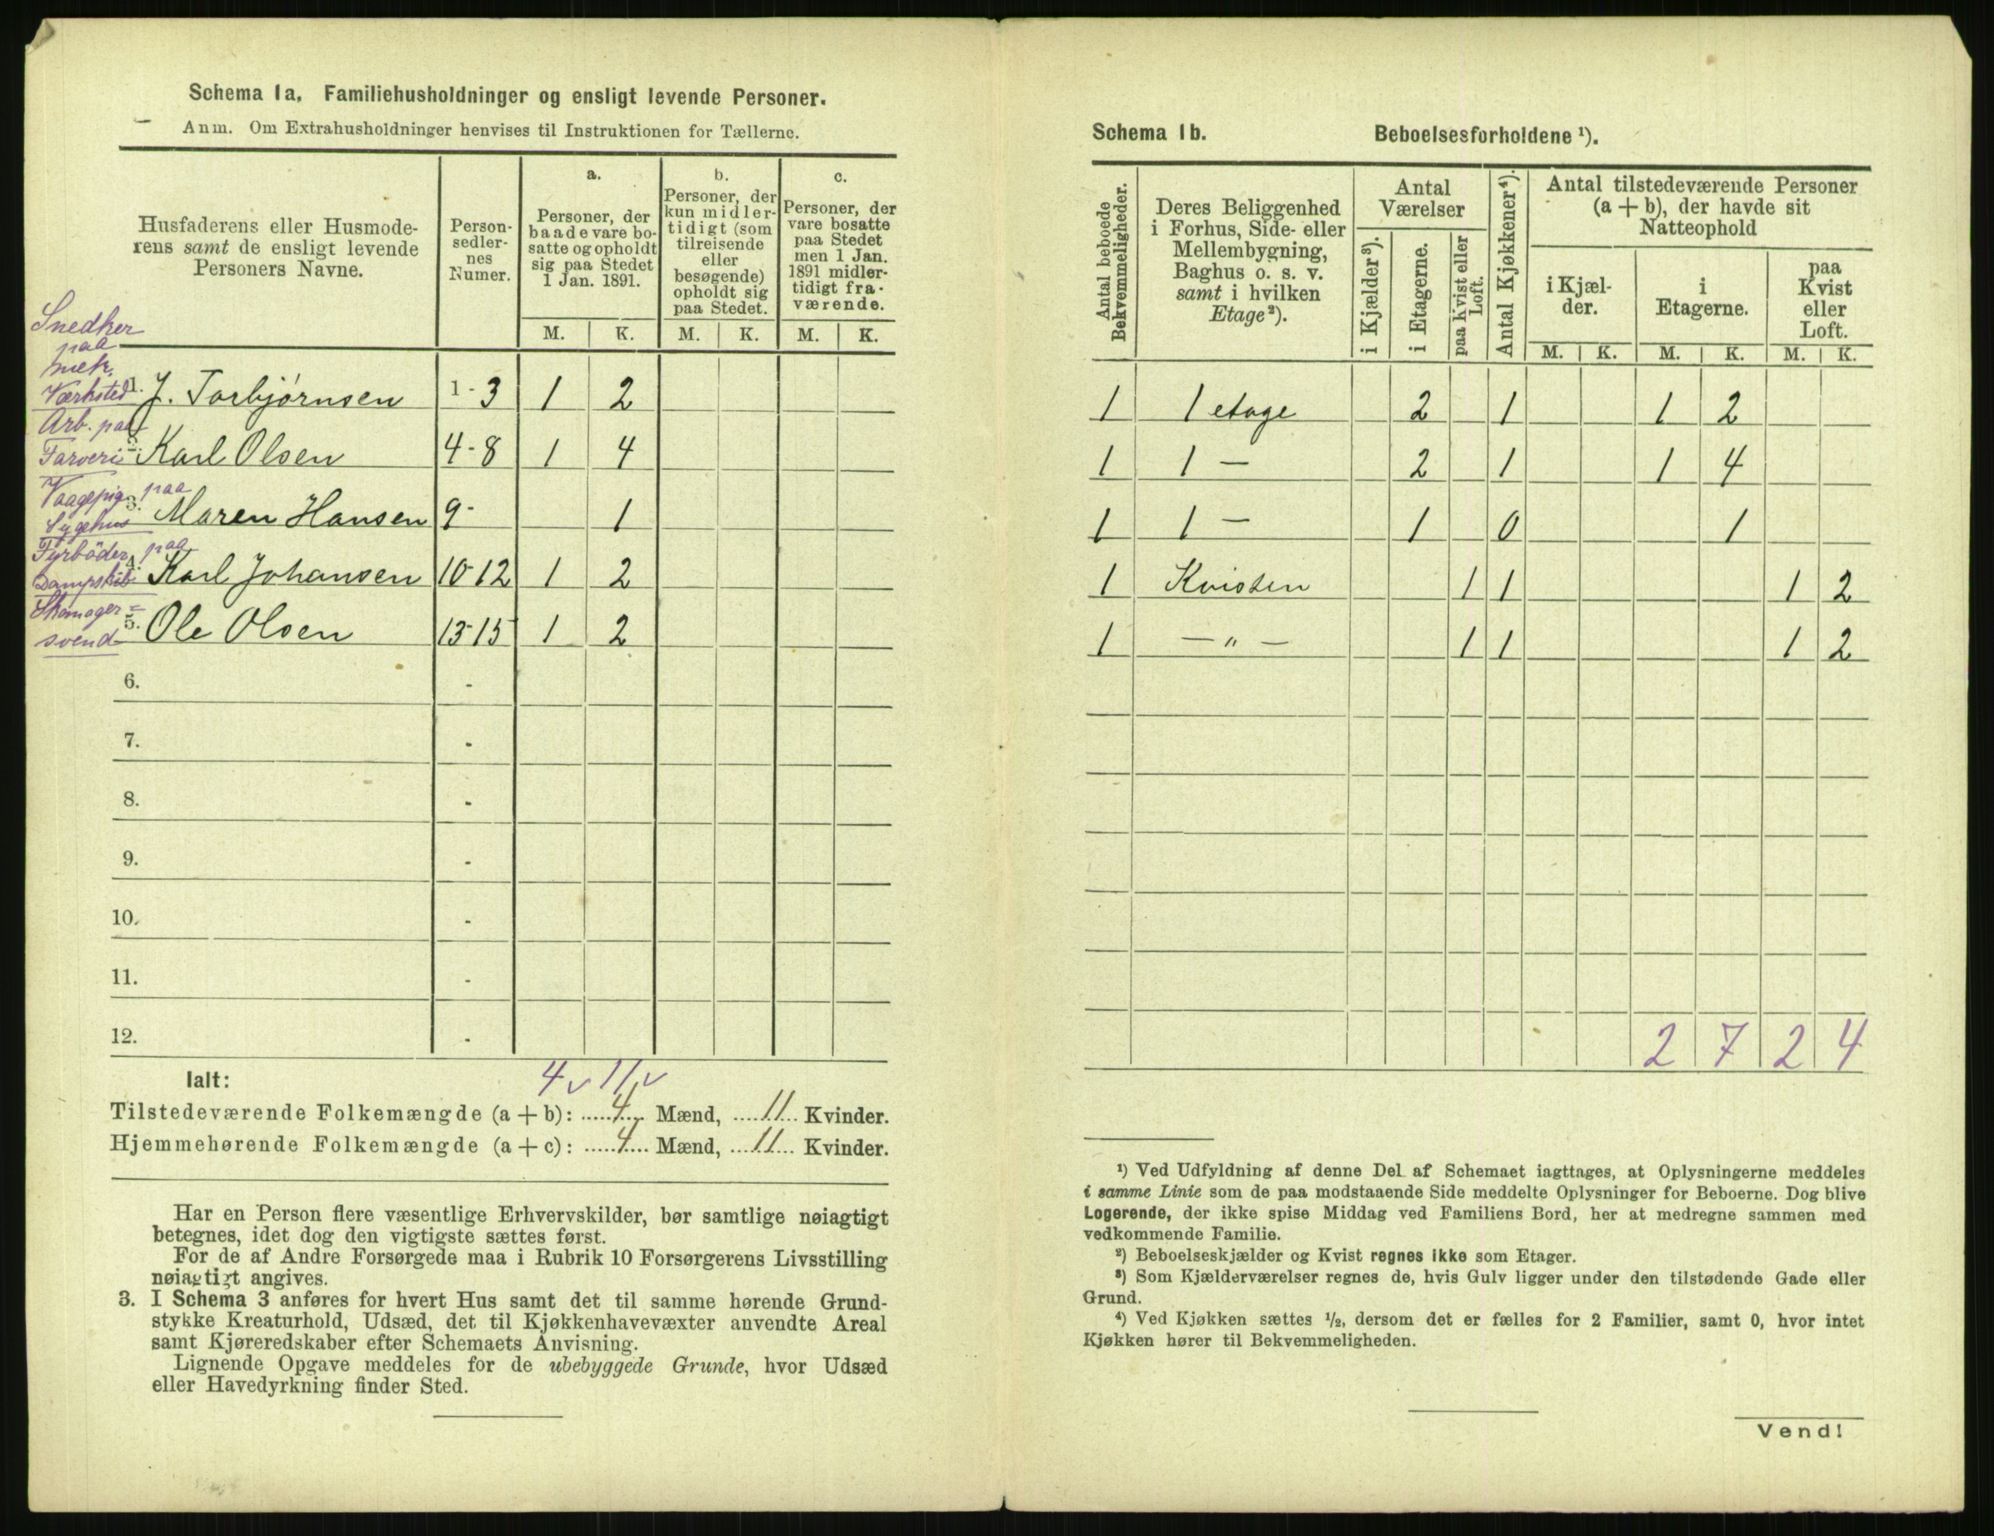 Schema 1a. Familiehusholdninger og ensligt levende Personer.
Anm. Om Extrahusholdninger henvises til Instruktionen for Tællerne.
Husfaderens eller Husmode-
rens samt de ensligt levende
Personers Navne.
Person-
sedler-
nes
Numer.
a.
Personer, der
baade vare bo-
satte og opholdt
sig paa Stedet
1 Jan. 1891.
b.
Personer, der
kun midler-
tidigt (som
tilreisende
eller
besøgende)
opholdt sig
paa Stedet.
c.
Personer, der
vare bosatte
paa Stedet
men 1 Jan.
1891 midler-
tidigt fra-
værende.
M. K. M. K. M. K.
Snedker
paa
mek.
Værksted 1. J. Torbjørnsen 1-3 1 2
Arb. paa
Farveri 2. Karl Olsen 4-8 1 4
Vaagepig paa
Sygehus 3. Maren Hansen 9- 1
Fyrböder paa
Dampskib 4. Karl Johansen 10-12 1 2
Skomager=
svend 5. Ole Olsen 13-15 1 2
6. -
7. -
8. -
9. -
10. -
11. -
12. -
Ialt: 4 v 11 v
Tilstedeværende Folkemængde (a + b): 4 Mænd, 11 Kvinder.
Hjemmehørende Folkemængde (a + c): 4 Mænd, 11 Kvinder.
Har en Person flere væsentlige Erhvervskilder, bør samtlige nøiagtigt
betegnes, idet dog den vigtigste sættes først.
For de af Andre Forsørgede maa i Rubrik 10 Forsørgerens Livsstilling
nøiagtigt angives.
3. I Schema 3 anføres for hvert Hus samt det til samme hørende Grund-
stykke Kreaturhold, Udsæd, det til Kjøkkenhavevæxter anvendte Areal
samt Kjøreredskaber efter Schemaets Anvisning.
Lignende Opgave meddeles for de ubebyggede Grunde, hvor Udsæd
eller Havedyrkning finder Sted.
Schema 1b. Beboelsesforholdene ¹).
Antal beboede
Bekvemmeligheder.
Deres Beliggenhed
i Forhus, Side- eller
Mellembygning,
Baghus o. s. v.
samt i hvilken
Etage²).
Antal
Værelser
i Kjælder³).
i Etagerne.
paa Kvist eller
Loft.
Antal Kjøkkener⁴).
Antal tilstedeværende Personer
(a + b), der havde sit
Natteophold
i Kjæl-
der.
i
Etagerne.
paa
Kvist
eller
Loft.
M. K. M. K. M. K.
1 1 etage 2 1 1 2
1 1 — 2 1 1 4
1 1 — 1 0 1
1 Kvisten 1 1 1 2
1 — „ — 1 1 1 2
2 7 2 4
¹) Ved Udfyldning af denne Del af Schemaet iagttages, at Oplysningerne meddeles
i samme Linie som de paa modstaaende Side meddelte Oplysninger for Beboerne. Dog blive
Logerende, der ikke spise Middag ved Familiens Bord, her at medregne sammen med
vedkommende Familie.
²) Beboelseskjælder og Kvist regnes ikke som Etager.
³) Som Kjælderværelser regnes de, hvis Gulv ligger under den tilstødende Gade eller
Grund.
⁴) Ved Kjøkken sættes ½, dersom det er fælles for 2 Familier, samt 0, hvor intet
Kjøkken hører til Bekvemmeligheden.
Vend!